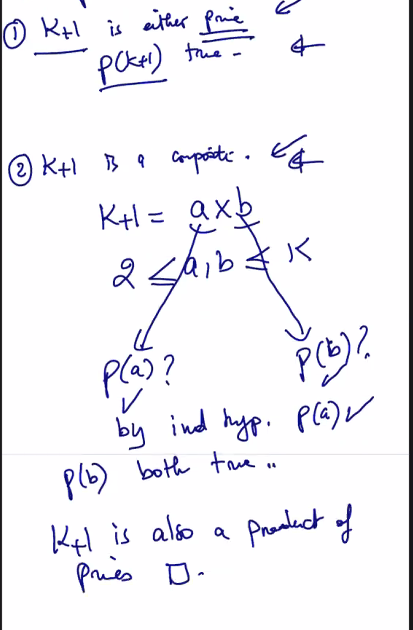 ① K+1 is either prime
P(K+1) true -
② K+1 is a composite.
K+1 = a x b
2 ≤ a, b ≤ K
P(a)? P(b)?
by ind hyp. P(a) ✓
P(b) both true ..
K+1 is also a product of
primes □.